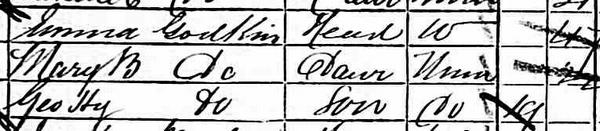 Emma Godkin Head W 47
Mary B Do Daur Unm
Geo Hy Do Son Do 19